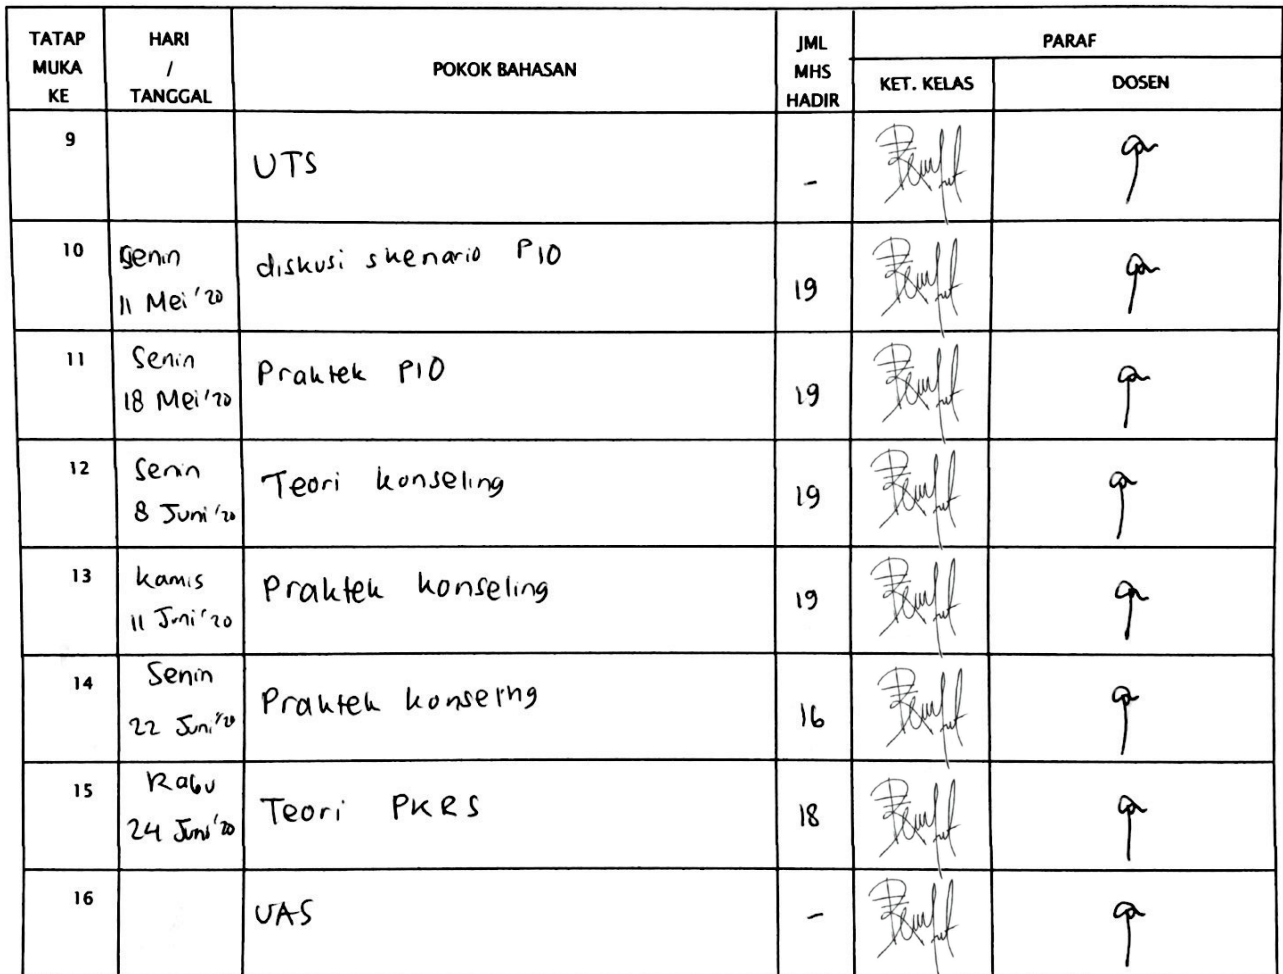 TATAP MUKA KE HARI / TANGGAL POKOK BAHASAN JML MHS HADIR PARAF
KET. KELAS DOSEN
9 UTS -
10 Senin 11 Mei '20 diskusi skenario PIO 19
11 Senin 18 Mei '20 Praktek PIO 19
12 Senin 8 Juni '20 Teori konseling 19
13 Kamis 11 Juni '20 Praktek konseling 19
14 Senin 22 Juni '20 Praktek konseling 16
15 Rabu 24 Juni '20 Teori PKRS 18
16 UAS -